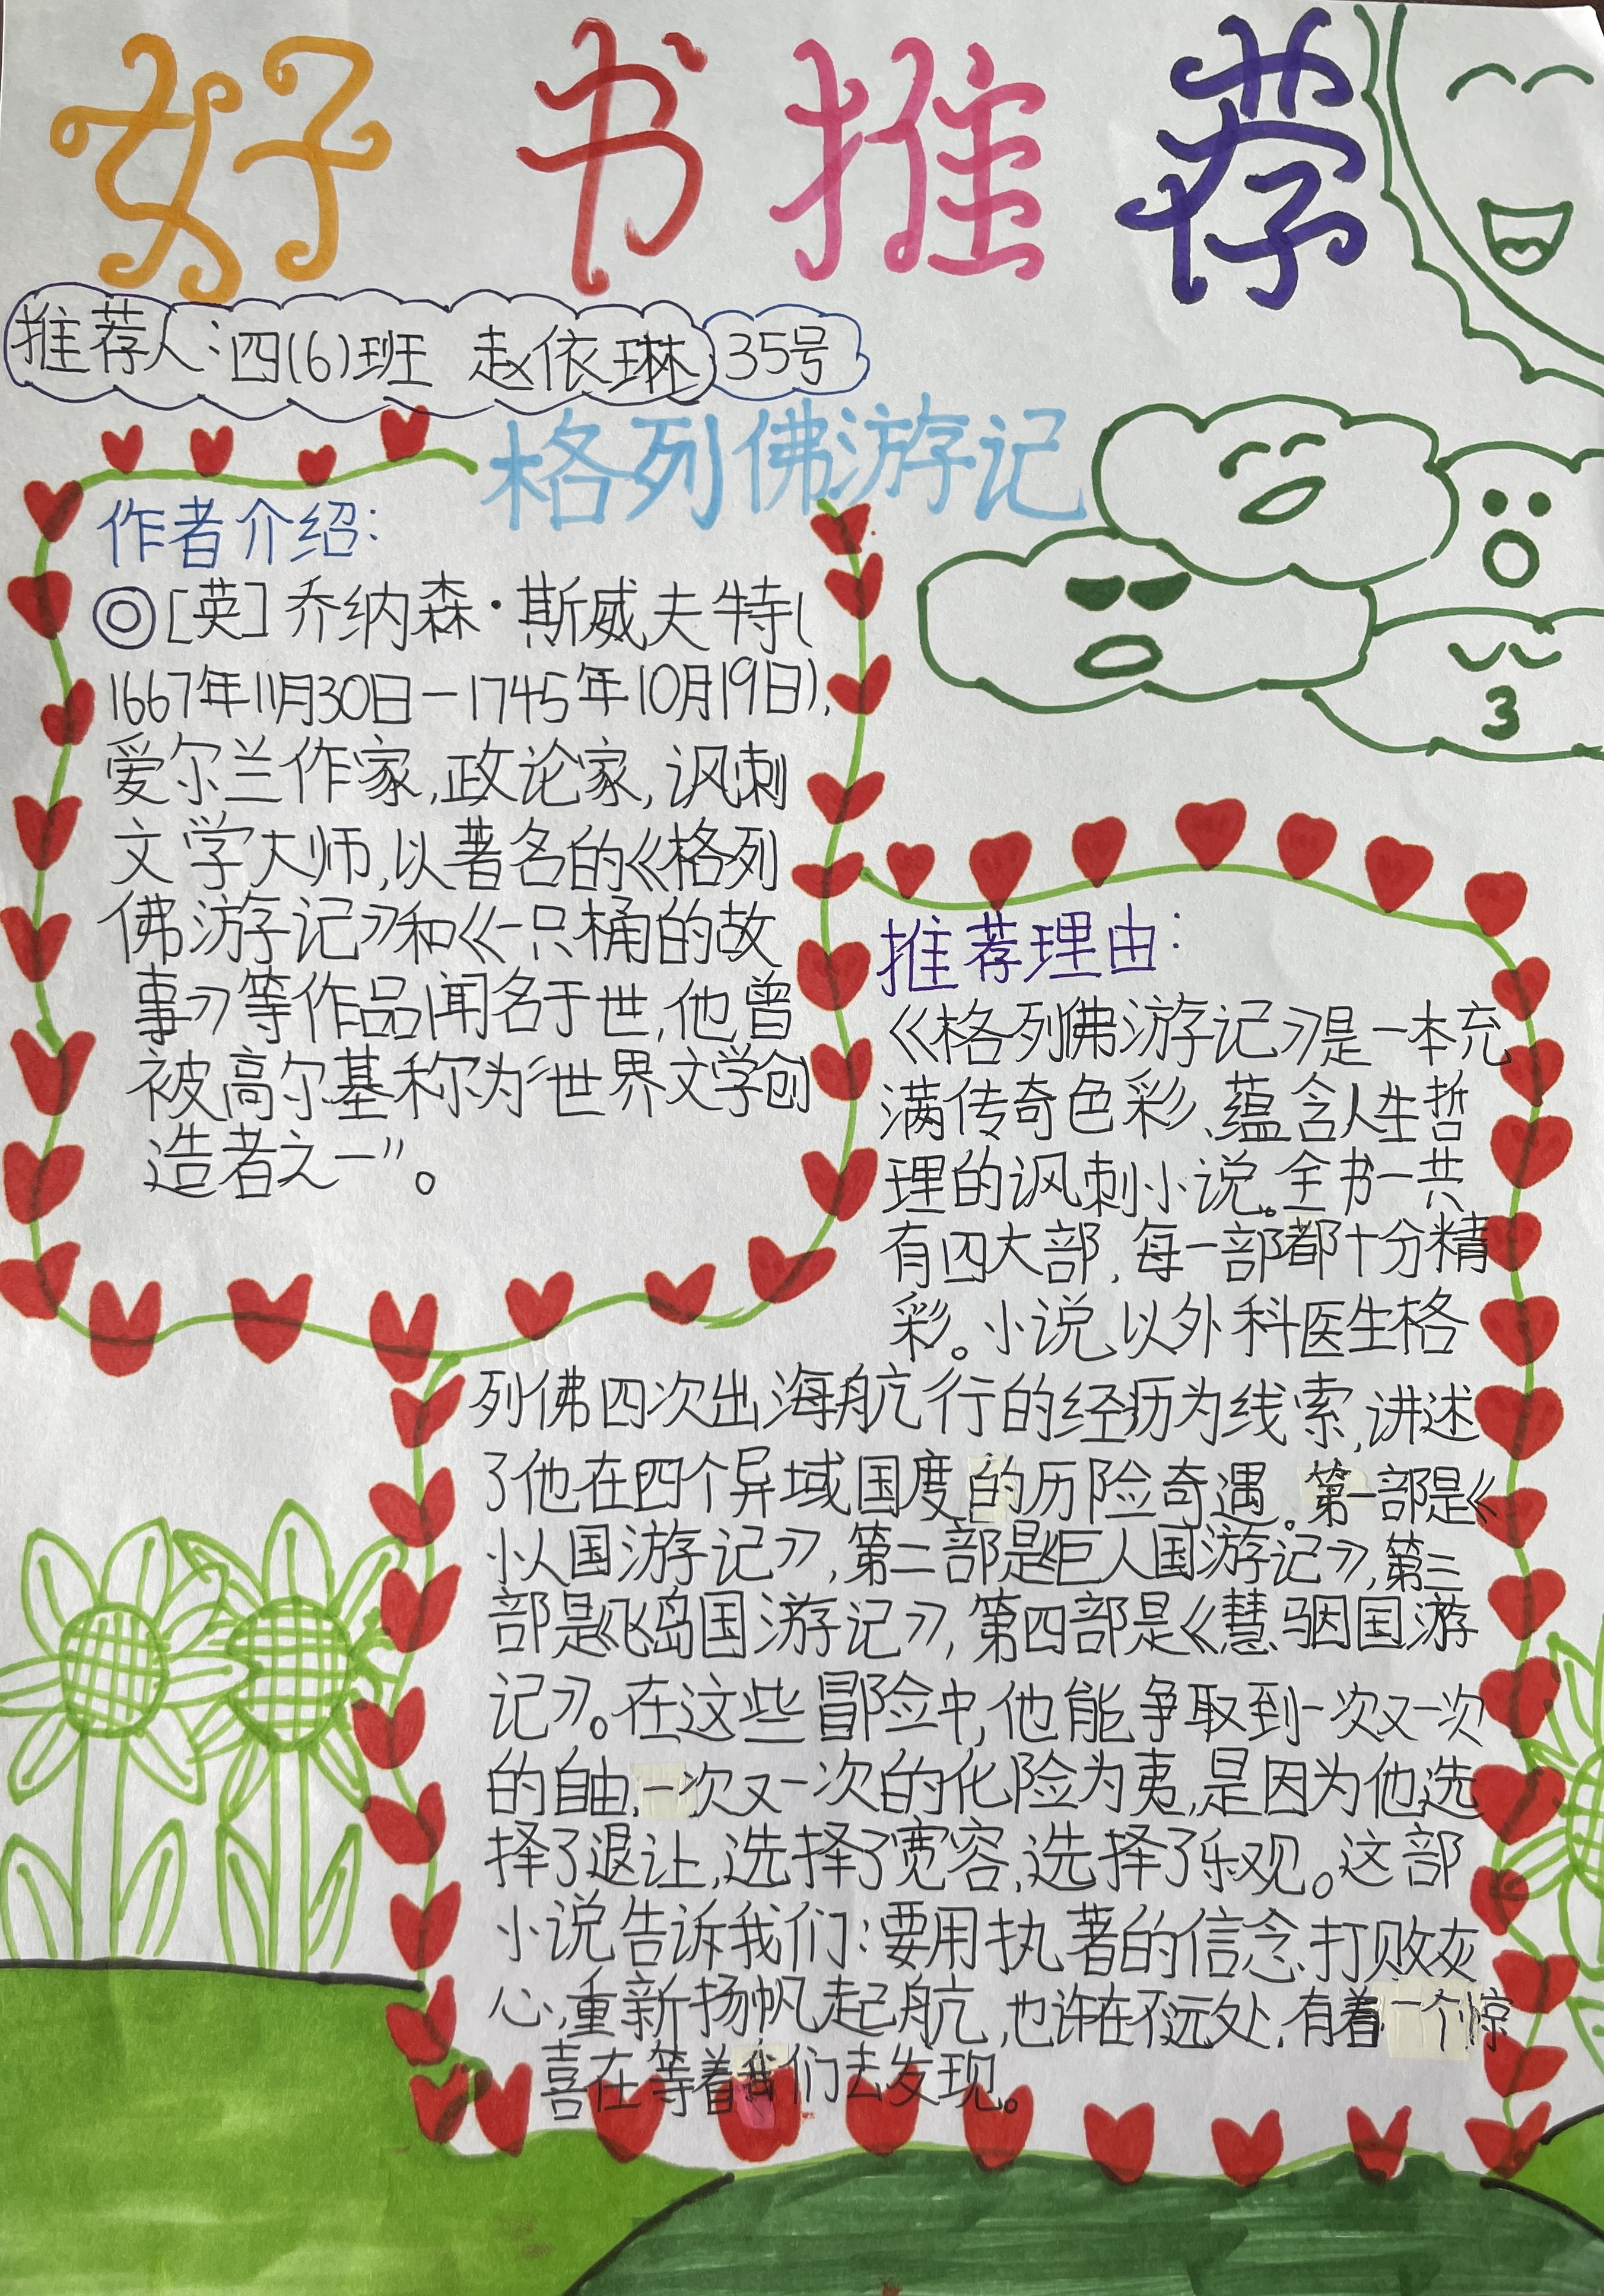 好书推荐
推荐人:四(6)班 赵依琳 35号
格列佛游记
作者介绍:
◎[英]乔纳森·斯威夫特(
1667年11月30日—1745年10月19日),
爱尔兰作家,政论家,讽刺
文学大师,以著名的《格列
佛游记》和《一只桶的故
事》等作品闻名于世,他曾
被高尔基称为“世界文学创
造者之一”。
推荐理由:
《格列佛游记》是一本充
满传奇色彩、蕴含人生哲
理的讽刺小说。全书一共
有四大部,每一部都十分精
彩。小说以外科医生格
列佛四次出海航行的经历为线索,讲述
了他在四个异域国度的历险奇遇。第一部是《
小人国游记》,第二部是《巨人国游记》,第三
部是《飞岛国游记》,第四部是《慧骃国游
记》。在这些冒险中,他能争取到一次又一次
的自由,一次又一次的化险为夷,是因为他选
择了退让,选择了宽容,选择了乐观。这部
小说告诉我们:要用执著的信念,打败灰
心,重新扬帆起航,也许在不远处,有着一个惊
喜在等着我们去发现。
3